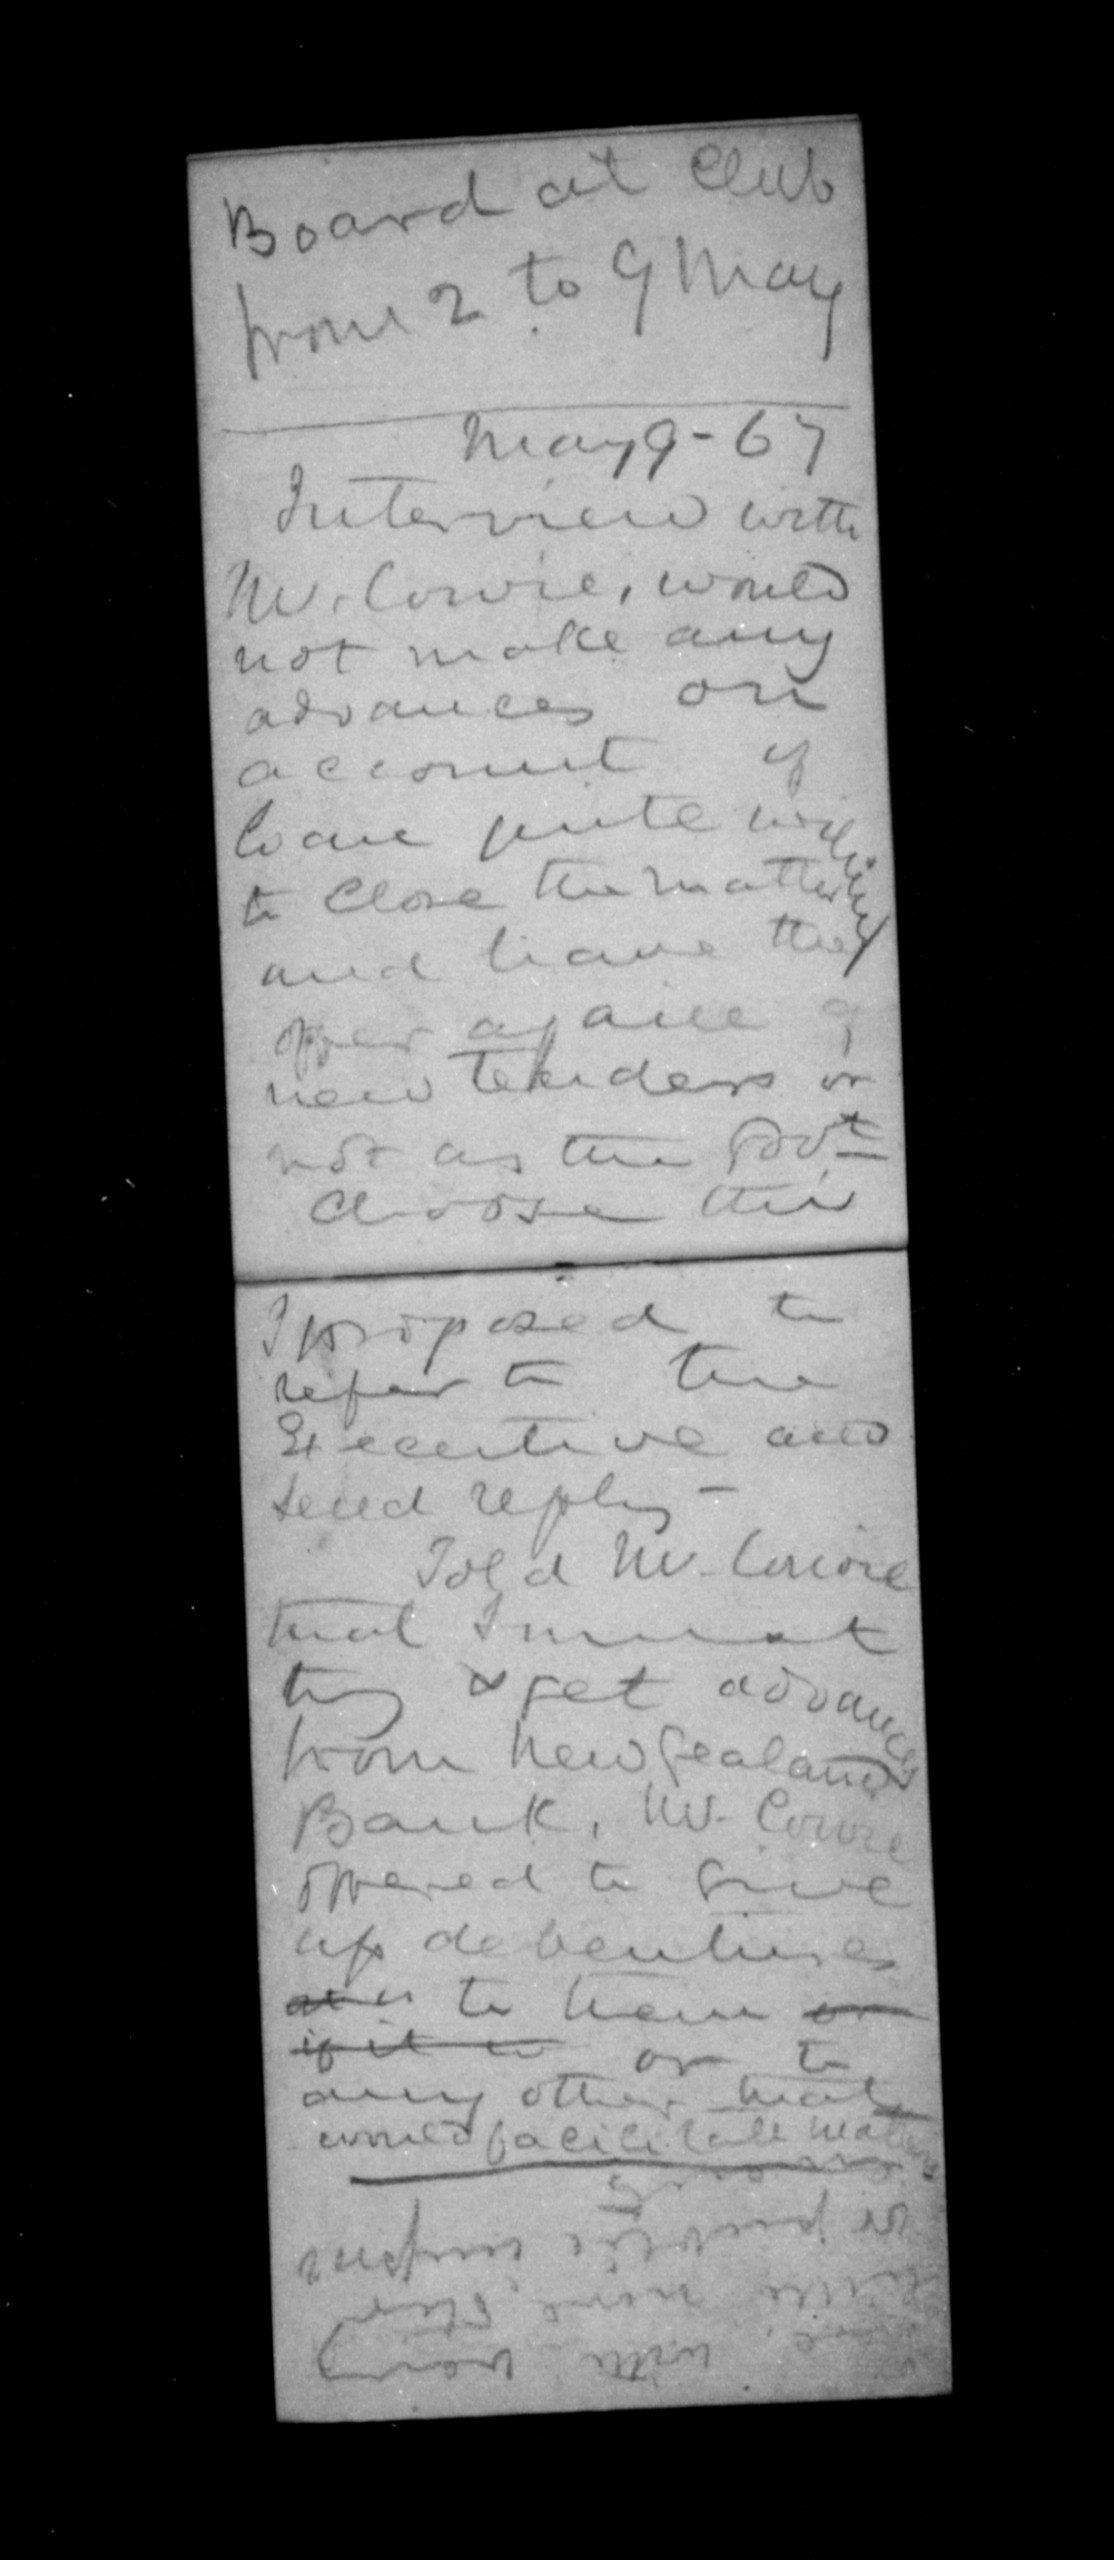 Board at Club
from 2 to 9 May
May 9 - 67
Interview with
Mr. Cowie, would
not make any
advances on
account of
loan quite willing
to close the matter
and leave they
offer again
new tenders or
not as the Govt
choose this
I proposed to
refer to the
Executive and
send reply -
Told Mr. Cowie
that I must
try & get advances
from New Zealand
Bank, Mr. Cowie
offered to give
up debentures
to them or
if it to or to
any other that
would facilitate matters